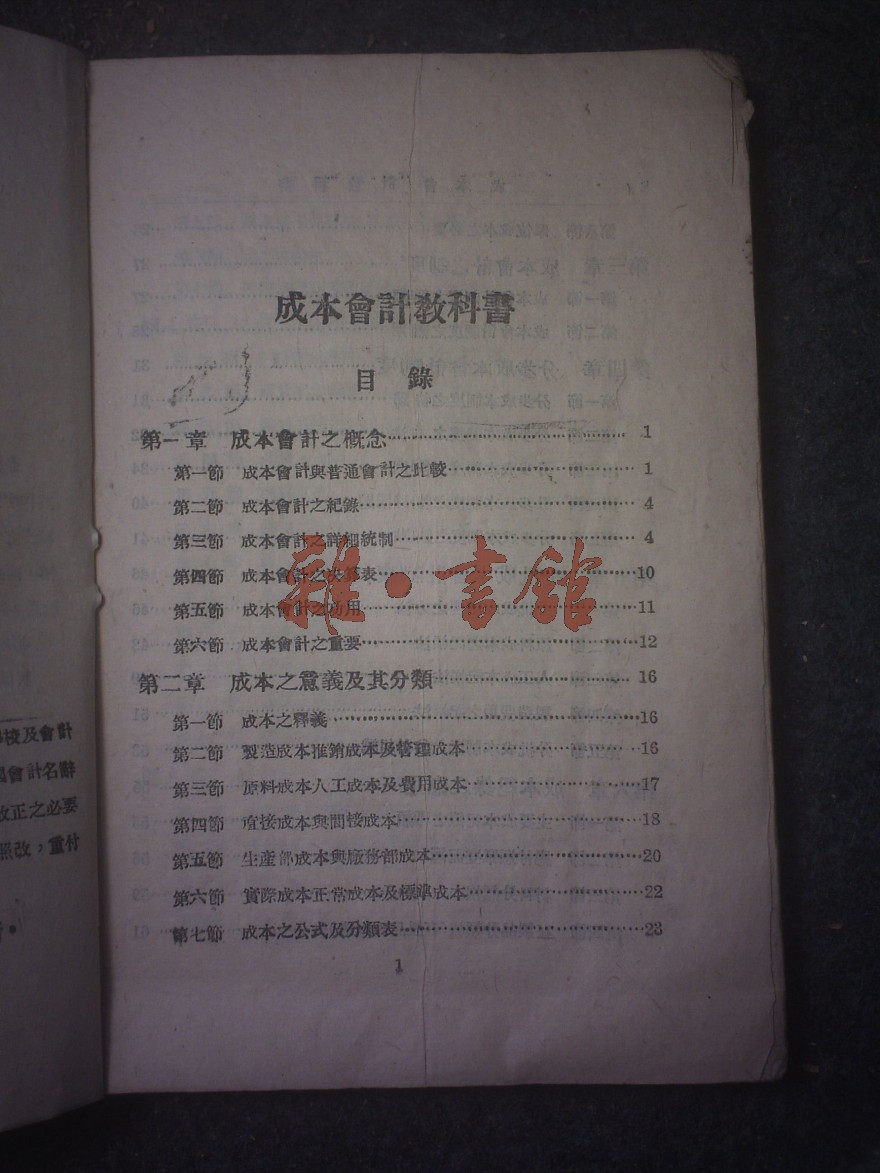 成本會計教科書
目錄
第一章 成本會計之概念 1
第一節 成本會計與普通會計之比較 1
第二節 成本會計之紀錄 4
第三節 成本會計之詳細統制 4
第四節 成本會計之決算表 10
第五節 成本會計之功用 11
第六節 成本會計之重要 12
第二章 成本之意義及其分類 16
第一節 成本之釋義 16
第二節 製造成本推銷成本及管理成本 16
第三節 原料成本人工成本及費用成本 17
第四節 直接成本與間接成本 18
第五節 生產部成本與廠務部成本 20
第六節 實際成本正常成本及標準成本 22
第七節 成本之公式及分類表 23
1
校及會計
會計名辭
改正之必要
照改，重付
雜·書館